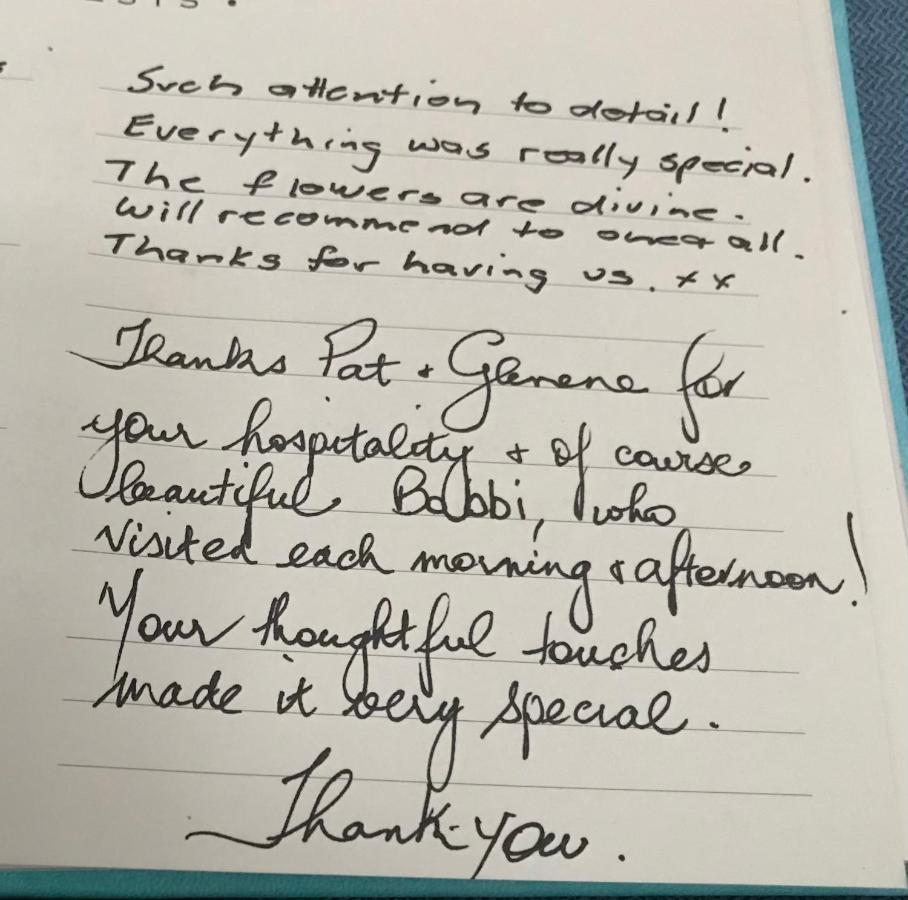 Such attention to detail!
Everything was really special.
The flowers are divine.
Will recommend to all.
Thanks for having us. xx
Thanks Pat + Glenene for
your hospitality + of course
beautiful Bobbi, who
visited each morning & afternoon!
Your thoughtful touches
made it very special.
Thank-you.